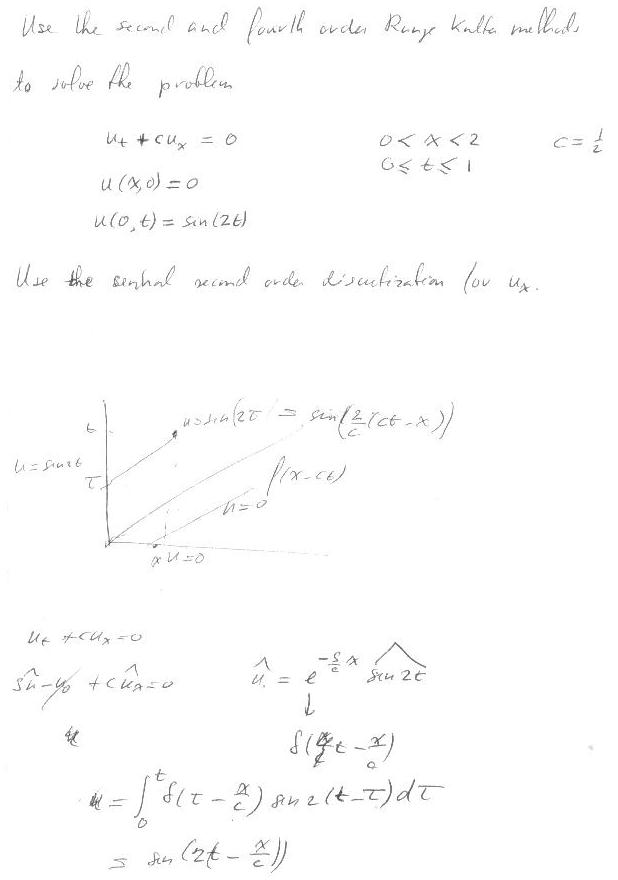 Use the second and fourth order Runge Kutta methods
to solve the problem
u_t + cu_x = 0    0 < x < 2    c = 1/2
0 ≤ t ≤ 1
u(x,0) = 0
u(0,t) = sin(2t)
Use the central second order discretization for u_x.
t    u = sin(2τ) = sin(2/c (ct - x))
u = sin 2t    τ    f(x - ct)
u = 0
x    u = 0
u_t + cu_x = 0
sû - u_0 + cû_x = 0    û = e^{-s/c x} \widehat{sin 2t}
↓
δ(t - x/c)
u = ∫_0^t δ(τ - x/c) sin 2(t - τ) dτ
= sin(2t - x/c))